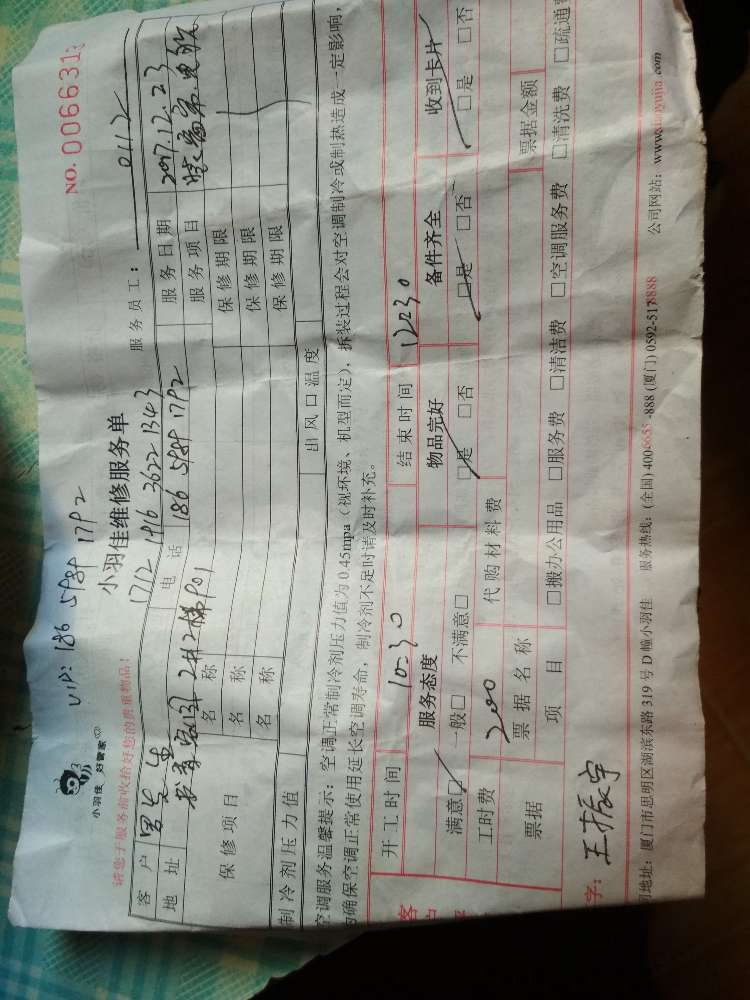 VIP: 186 5989 1792
NO. 006631
小羽佳 好管家
请您于服务前收拾好您的贵重物品!
小羽佳维修服务单
服务员工: 0112
1712 1916 3622 1343
客户
电话 186 5989 1792
服务日期 2017.12.23
地址 2井2梯901
服务项目
保修项目
名称
保修期限
名称
保修期限
名称
保修期限
制冷剂压力值
出风口温度
空调服务温馨提示: 空调正常制冷剂压力值为0.45mpa(视环境、机型而定), 拆装过程会对空调制冷或制热造成一定影响,
为确保空调正常使用延长空调寿命, 制冷剂不足时请及时补充。
开工时间 10:30
结束时间 12:30
服务态度
物品完好
备件齐全
收到卡片
满意□ 一般□ 不满意□
□是 □否
□是 □否
□是 □否
工时费 200
代购材料费
票据
票据名称
票据金额
项目
□搬办公用品 □服务费 □清洁费 □空调服务费 □清洗费 □疏通费
字: 王振宇
司地址: 厦门市思明区湖滨东路 319 号 D 幢小羽佳 服务热线: (全国) 4006655-888 (厦门) 0592-5178888 公司网站: www.xiaoyujia.com